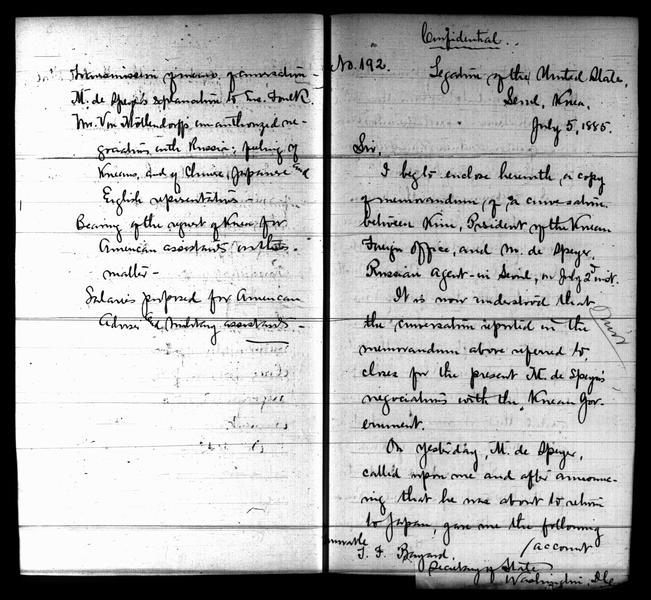 Transmission of memo. of conversation -
M. de Speyer's explanation to
Mr. Von Möllendorff's unauthorized ne-
gociations with Russia; feeling of
Koreans, and of Chinese, Japanese and
English representatives -
Bearing of the request of Korea for
American assistants on the
matter -
Salaries proposed for American
Adviser and military assistants -
Confidential.
No. 192.
Legation of the United States,
Seoul, Korea,
July 5, 1885.
Sir:
I beg to enclose herewith, a copy
of memorandum, of a conversation
between Kim, President of the Korean
Foreign Office, and M. de Speyer,
Russian Agent in Seoul, on July 2d inst.
It is now understood that
the conversation reported in the
memorandum above referred to,
closes for the present M. de Speyer's
negociations with the Korean Gov-
ernment.
On yesterday, M. de Speyer,
called upon me and after announc-
ing that he was about to return
to Japan, gave me the following
/account
T. F. Bayard.
Secretary of State
Washington, D.C.